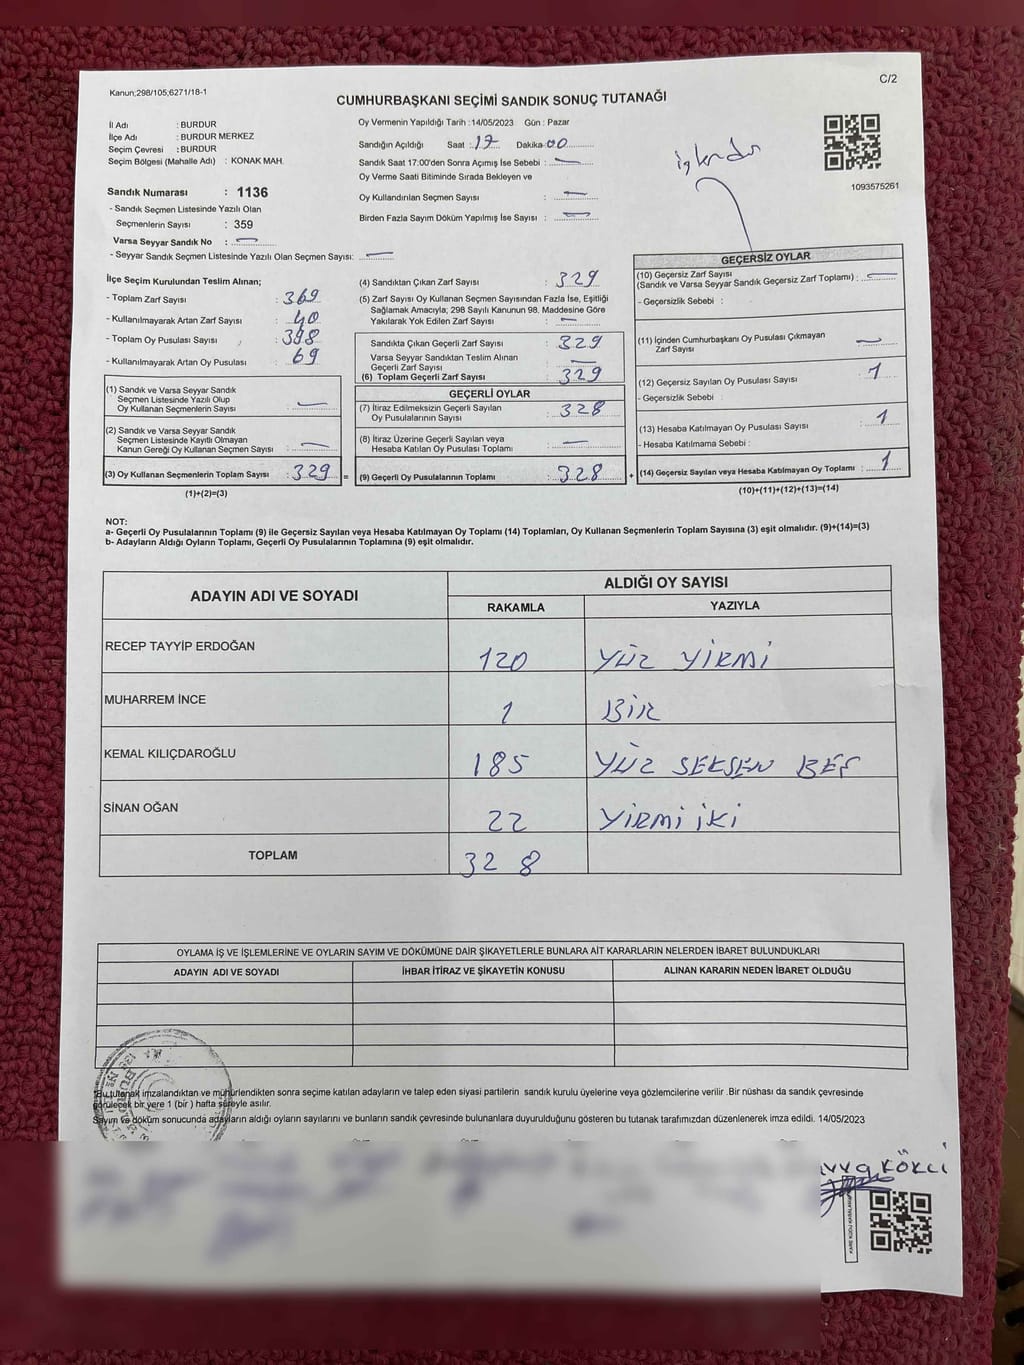 C/2
Kanun;298/105;6271/18-1
CUMHURBAŞKANI SEÇİMİ SANDIK SONUÇ TUTANAĞI
İl Adı : BURDUR
İlçe Adı : BURDUR MERKEZ
Seçim Çevresi : BURDUR
Seçim Bölgesi (Mahalle Adı) : KONAK MAH.
Sandık Numarası : 1136
- Sandık Seçmen Listesinde Yazılı Olan
Seçmenlerin Sayısı : 359
Varsa Seyyar Sandık No : —
- Seyyar Sandık Seçmen Listesinde Yazılı Olan Seçmen Sayısı: —
Oy Vermenin Yapıldığı Tarih :14/05/2023 Gün : Pazar
Sandığın Açıldığı Saat :17 Dakika:00
Sandık Saat 17:00'den Sonra Açımış İse Sebebi : —
Oy Verme Saati Bitiminde Sırada Bekleyen ve
Oy Kullandırılan Seçmen Sayısı : —
Birden Fazla Sayım Döküm Yapılmış İse Sayısı : —
işlendi
1093575261
İlçe Seçim Kurulundan Teslim Alınan;
- Toplam Zarf Sayısı : 369
- Kullanılmayarak Artan Zarf Sayısı : 40
- Toplam Oy Pusulası Sayısı : 398
- Kullanılmayarak Artan Oy Pusulası : 69
(1) Sandık ve Varsa Seyyar Sandık
Seçmen Listesinde Yazılı Olup
Oy Kullanan Seçmenlerin Sayısı : —
(2) Sandık ve Varsa Seyyar Sandık
Seçmen Listesinde Kayıtlı Olmayan
Kanun Gereği Oy Kullanan Seçmen Sayısı : —
(3) Oy Kullanan Seçmenlerin Toplam Sayısı : 329 =
(1)+(2)=(3)
(4) Sandıktan Çıkan Zarf Sayısı : 329
(5) Zarf Sayısı Oy Kullanan Seçmen Sayısından Fazla İse, Eşitliği
Sağlamak Amacıyla; 298 Sayılı Kanunun 98. Maddesine Göre
Yakılarak Yok Edilen Zarf Sayısı : —
Sandıkta Çıkan Geçerli Zarf Sayısı : 329
Varsa Seyyar Sandıktan Teslim Alınan
Geçerli Zarf Sayısı : —
(6) Toplam Geçerli Zarf Sayısı : 329
GEÇERLİ OYLAR
(7) İtiraz Edilmeksizin Geçerli Sayılan
Oy Pusulalarının Sayısı : 328
(8) İtiraz Üzerine Geçerli Sayılan veya
Hesaba Katılan Oy Pusulası Toplamı : —
(9) Geçerli Oy Pusulalarının Toplamı : 328 +
GEÇERSİZ OYLAR
(10) Geçersiz Zarf Sayısı
(Sandık ve Varsa Seyyar Sandık Geçersiz Zarf Toplamı) : —
- Geçersizlik Sebebi :
(11) İçinden Cumhurbaşkanı Oy Pusulası Çıkmayan
Zarf Sayısı : —
(12) Geçersiz Sayılan Oy Pusulası Sayısı : 1
- Geçersizlik Sebebi :
(13) Hesaba Katılmayan Oy Pusulası Sayısı : 1
- Hesaba Katılmama Sebebi :
(14) Geçersiz Sayılan veya Hesaba Katılmayan Oy Toplamı : 1
(10)+(11)+(12)+(13)=(14)
NOT:
a- Geçerli Oy Pusulalarının Toplamı (9) ile Geçersiz Sayılan veya Hesaba Katılmayan Oy Toplamı (14) Toplamları, Oy Kullanan Seçmenlerin Toplam Sayısına (3) eşit olmalıdır. (9)+(14)=(3)
b- Adayların Aldığı Oyların Toplamı, Geçerli Oy Pusulalarının Toplamına (9) eşit olmalıdır.
ADAYIN ADI VE SOYADI
ALDIĞI OY SAYISI
RAKAMLA YAZIYLA
RECEP TAYYİP ERDOĞAN 120 YÜZ YİRMİ
MUHARREM İNCE 1 BİR
KEMAL KILIÇDAROĞLU 185 YÜZ SEKSEN BEŞ
SİNAN OĞAN 22 YİRMİ İKİ
TOPLAM 328
OYLAMA İŞ VE İŞLEMLERİNE VE OYLARIN SAYIM VE DÖKÜMÜNE DAİR ŞİKAYETLERLE BUNLARA AİT KARARLARIN NELERDEN İBARET BULUNDUKLARI
ADAYIN ADI VE SOYADI İHBAR İTİRAZ VE ŞİKAYETİN KONUSU ALINAN KARARIN NEDEN İBARET OLDUĞU
*Bu tutanak imzalandıktan ve mühürlendikten sonra seçime katılan adayların ve talep eden siyasi partilerin sandık kurulu üyelerine veya gözlemcilerine verilir .Bir nüshası da sandık çevresinde
görülecek bir yere 1 (bir ) hafta süreyle asılır.
Sayım ve döküm sonucunda adayların aldığı oyların sayılarını ve bunların sandık çevresinde bulunanlara duyurulduğunu gösteren bu tutanak tarafımızdan düzenlenerek imza edildi. 14/05/2023